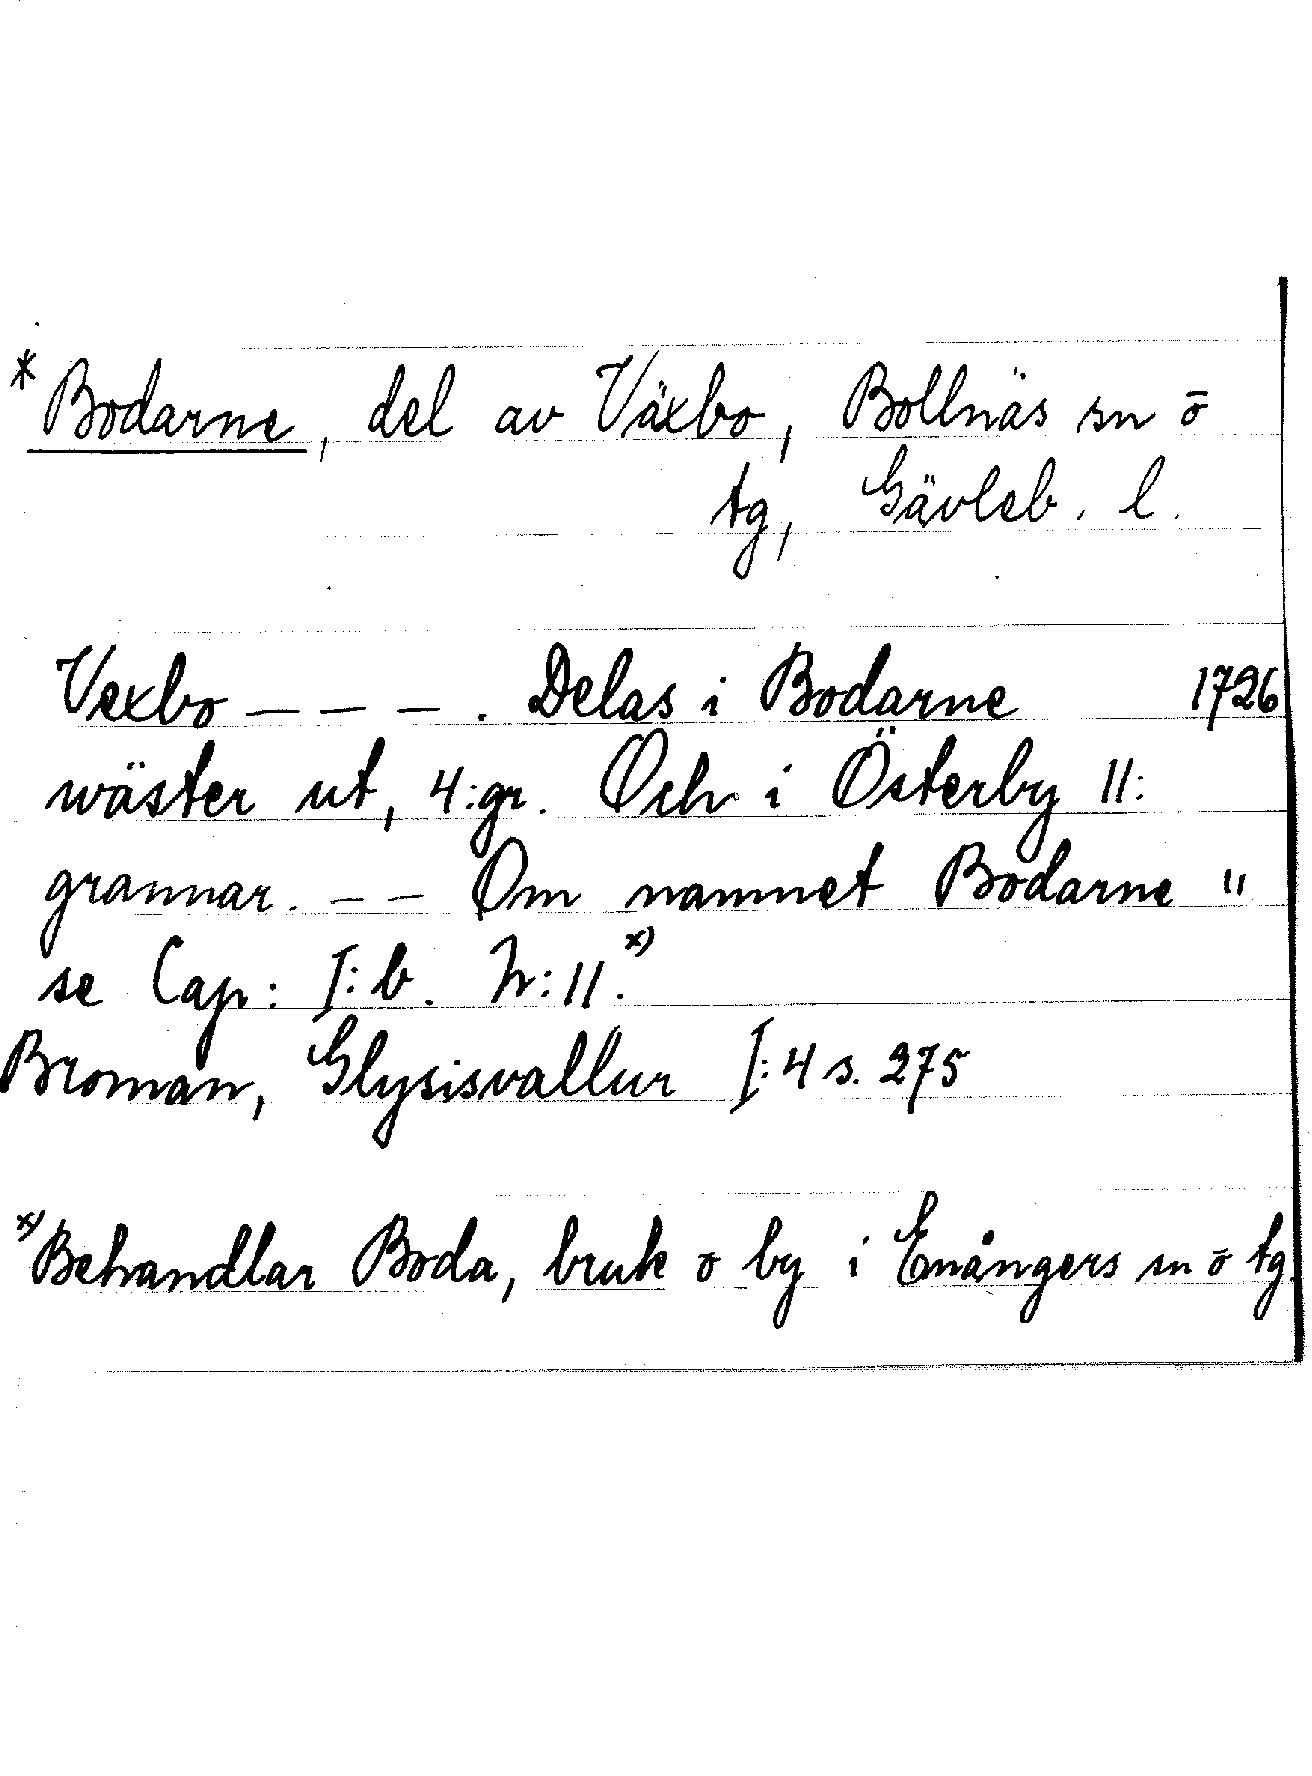 * Bodarne, del av Växbo, Bollnäs sn ō
tg, Gävleb. l.
Vexbo – – – . Delas i Bodarne 1726
wäster ut, 4:gr. Och i Österby 11:
grannar. – – Om namnet Bodarne "
se Cap: I:b. N:11.x)
Broman, Glysisvallur I:4 s. 275
x) Behandlar Boda, bruk ō by i Enångers sn ō tg.